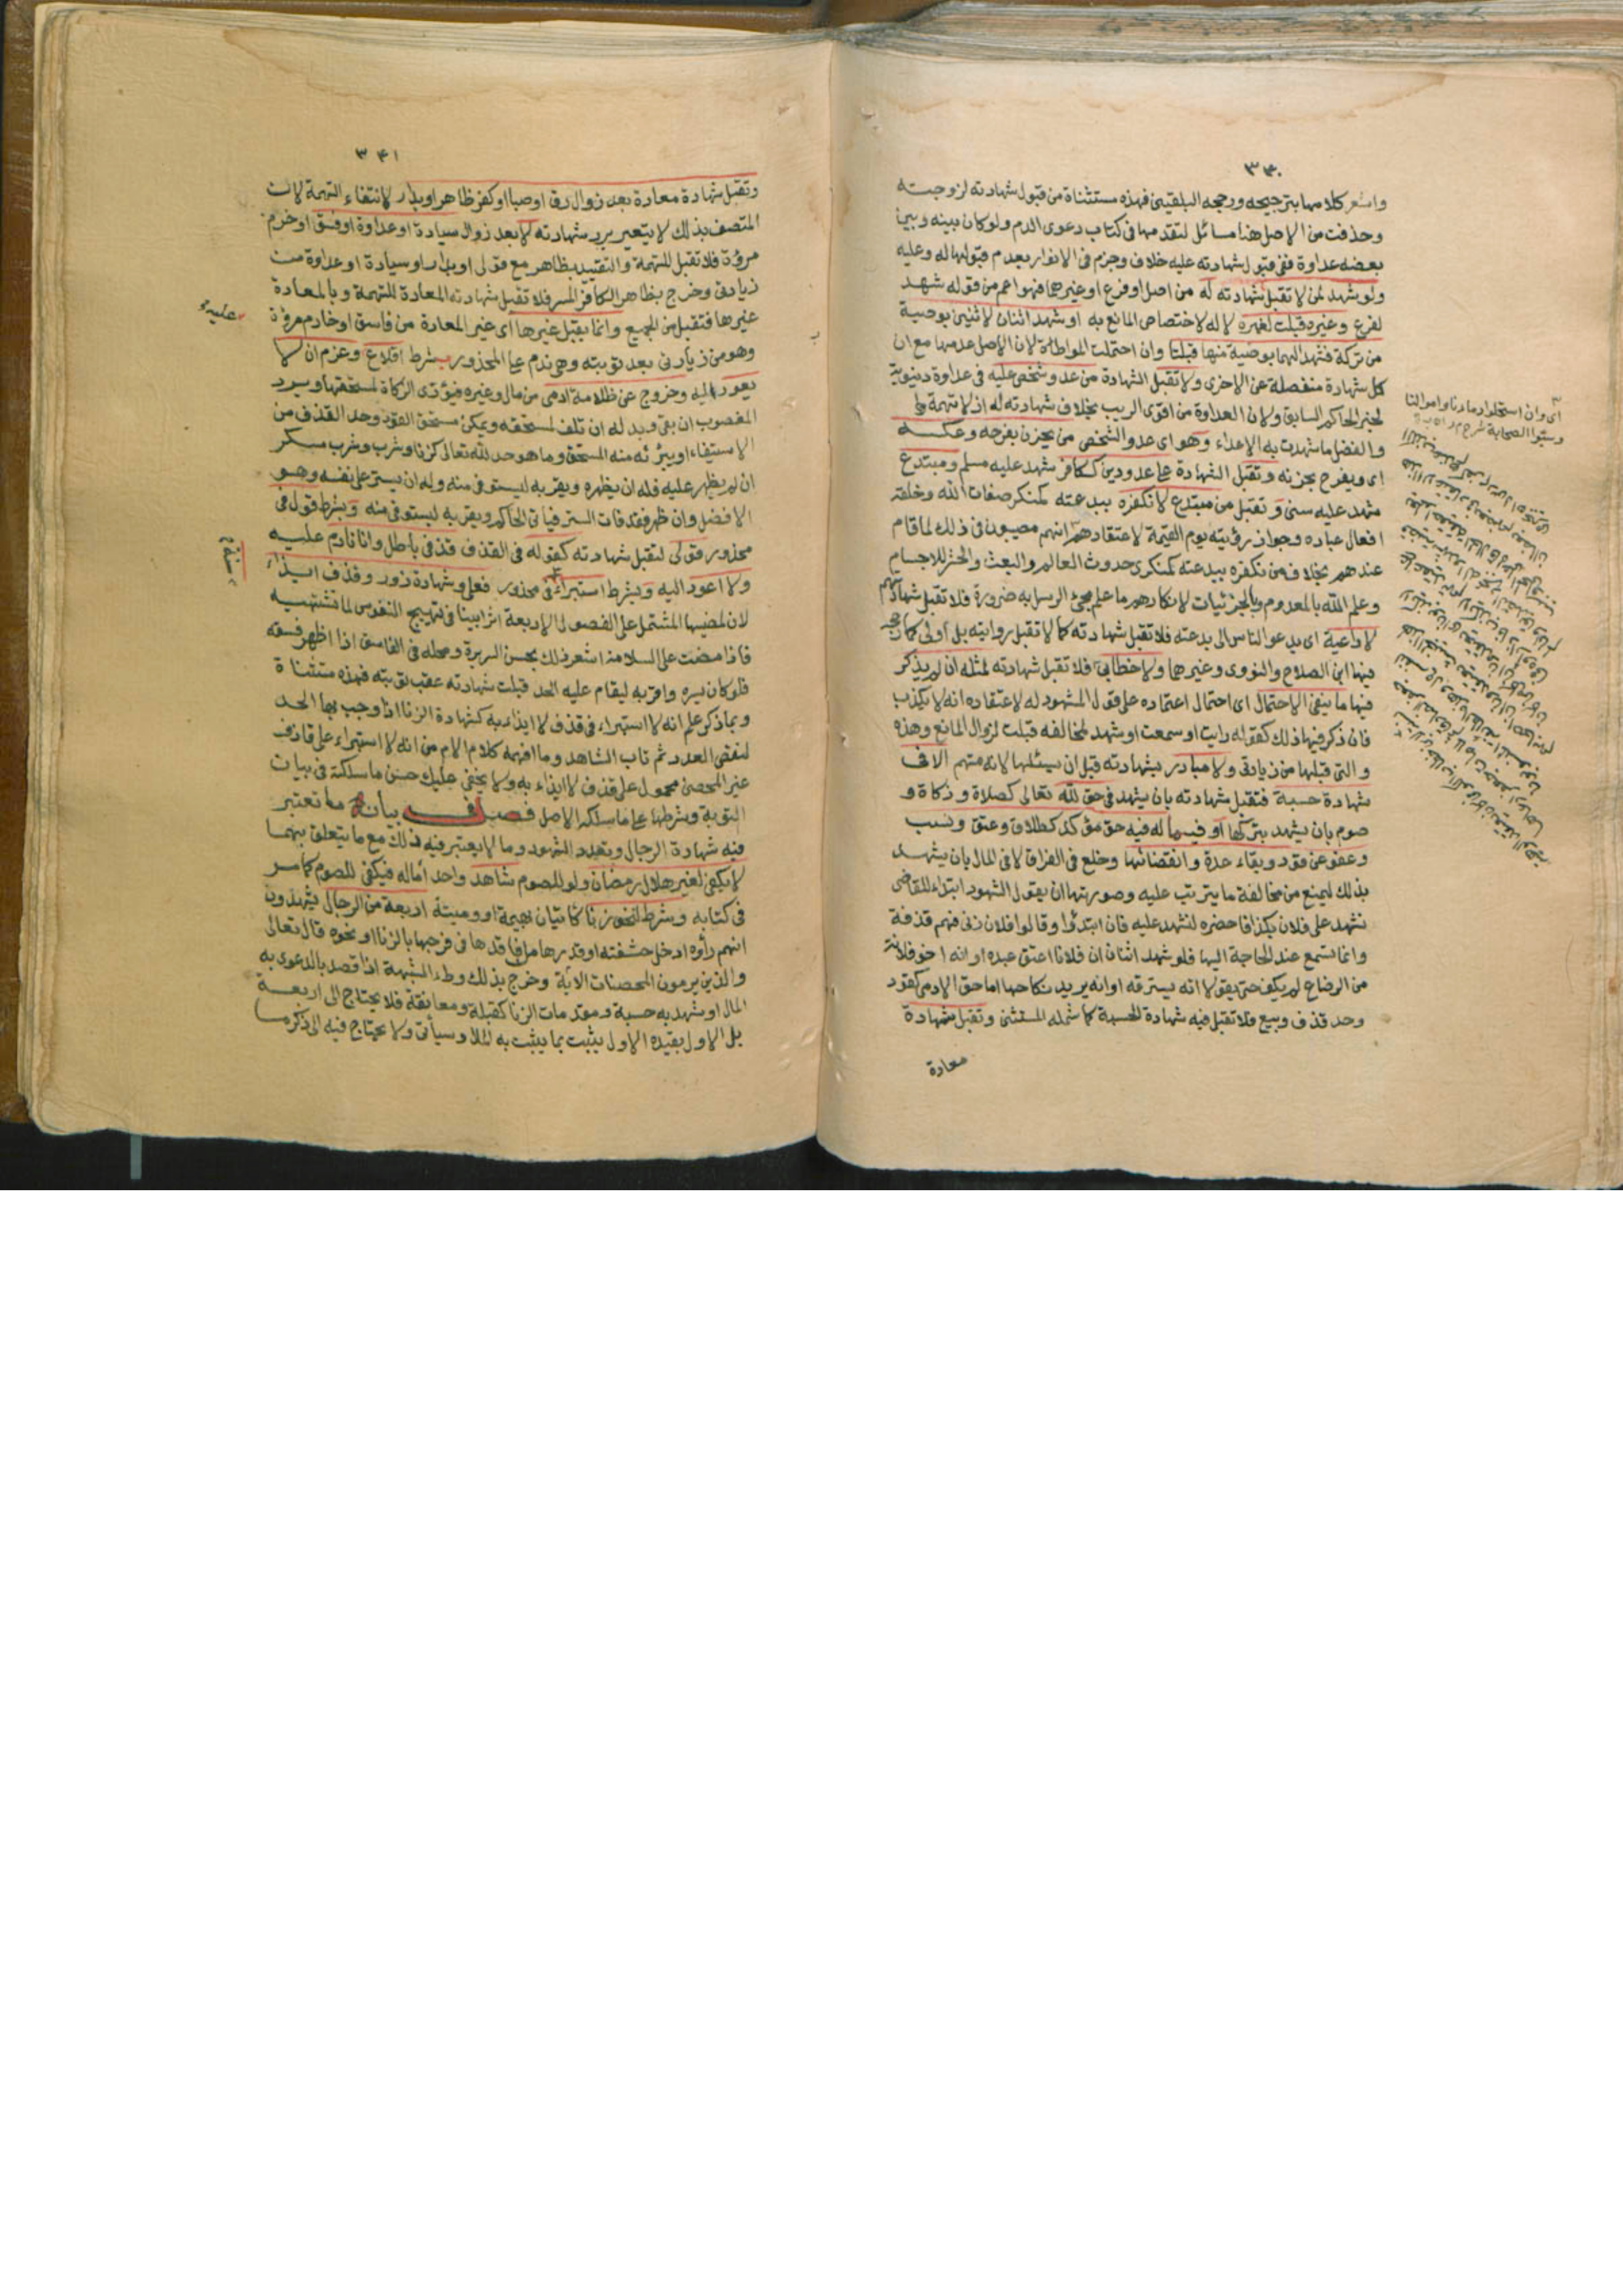 ٣٤٠
واشعر كلامهما بترجيحه ورجحه البلقيني فهذه مستثناة من قبول شهادته لزوجته
وحذفت من الاصل هنا مسائل لتقدمها في كتاب دعوى الدم ولو كان بينه وبين
بعضه عداوة ففي قبول شهادته عليه خلاف وجزم في الانوار بعدم قبولها له وعليه
ولو شهد لمن لا تقبل شهادته له من اصل او فرع او غيرهما فهو اعم من قوله شهد
لفرع وغيره قبلت لغيره لا له لاختصاص المانع به او شهد اثنان لاثنين بوصية
من تركة فشهدا لهما بوصية منها قبلتا وان احتملت المواطأة لان الاصل عدمها مع ان
كل شهادة منفصلة عن الاخرى ولا تقبل الشهادة من عدو شخص عليه في عداوة دنيوية
لخبر الحاكم السابق ولان العداوة من اقوى الريب بخلاف شهادته له اذ لا تهمة
والفضل ما شهدت به الاعداء وهو اى عدو الشخص من يحزن بفرحه وعكسه
اى ويفرح بحزنه وتقبل الشهادة على عدو دين ككافر شهد عليه مسلم ومبتدع
شهد عليه سني وتقبل من مبتدع لا نكفره ببدعته كمنكر صفات الله وخلقه
افعال عباده وجواز رؤيته يوم القيمة لاعتقادهم انهم مصيبون في ذلك لما قام
عندهم بخلاف من نكفره ببدعته كمنكرى حدوث العالم والبعث والحشر للاجسام
وعلم الله بالمعدوم وبالجزئيات لانكارهم ما علم مجئ الرسل به ضرورة فلا تقبل شهادتهم
لا داعية اى يدعو الناس الى بدعته فلا تقبل شهادته كما لا تقبل روايته بل اولى كما رجحه
فيها ابن الصلاح والنووى وغيرهما ولا خطابي فلا تقبل شهادته لمثله ان لم يذكر
فيها ما ينفي الاحتمال اى احتمال اعتماده على قول المشهود له لاعتقاده انه لا يكذب
فان ذكر فيها ذلك كقوله رايت او سمعت او شهد لمخالفه قبلت لزوال المانع وهذه
والتى قبلها من زيادتى ولا مبادر بشهادته قبل ان يسئلها لانه متهم الا في
شهادة حسبة فتقبل شهادته بان يشهد في حق لله تعالى كصلاة وزكاة و
صوم بان يشهد بتركها او فيما له فيه حق مؤكد كطلاق وعتق ونسب
وعفو عن قود وبقاء عدة وانقضائها وخلع في الفراق لا في المال بان يشهد
بذلك ليمنع من مخالفة ما يترتب عليه وصورتها ان يقول الشهود ابتداء للقاضى
نشهد على فلان بكذا فاحضره لنشهد عليه فان ابتدؤا وقالوا فلان زنى فهم قذفة
وانما تسمع عند الحاجة اليها فلو شهد اثنان ان فلانا اعتق عبده او انه اخو فلانة
من الرضاع لم يكف حتى يقولا انه يسترقه او انه يريد نكاحها اما حق الادمى كقود
وحد قذف وبيع فلا تقبل فيه شهادة الحسبة كما شمله المستثنى وتقبل شهادة
معادة
اى وان استحلوا دماءنا واموالنا
وسبوا الصحابة
٣٤١
وتقبل شهادة معادة بعد زوال رق او صبا او كفر ظاهر او بدار لانتفاء التهمة لان
المتصف بذلك لا يتعير برد شهادته لا بعد زوال سيادة او عداوة او فسق او خرم
مروؤة فلا تقبل للتهمة والتقييد بظاهر مع قولى او بدار او سيادة او عداوة من
زيادتى وخرج بظاهر الكافر المسر فلا تقبل شهادته المعادة للتهمة وبالمعادة
غيرها فتقبل من الجميع وانما يقبل غيرها اى غير المعادة من فاسق او خارم مروؤة
وهو من زيادتى بعد توبته وهى ندم على المحذور بشرط اقلاع وعزم ان لا
يعود اليه وخروج عن ظلامة آدمى من مال وغيره فيؤدى الزكاة لمستحقها ويرد
المغصوب ان بقى وبدله ان تلف لمستحقه ويمكن مستحق القود وحد القذف من
الاستيفاء او يبرئه منه المستحق وما هو حد لله تعالى كزنا وشرب وشرب مسكر
ان لم يظهر عليه فله ان يظهره ويقر به ليستوفى منه وله ان يستر على نفسه وهو
الافضل وان ظهر فقد فات الستر فياتى الحاكم ويقر به ليستوفى منه وبشرط قول في
محذور قولى لتقبل شهادته كقوله في القذف قذفى باطل وانا نادم عليه
ولا اعود اليه وبشرط استبراء في محذور فعلى وشهادة زور وقذف ايذاء
لان لمضيها المشتمل على الفصول الاربعة اثرا بينا في تهييج النفوس لما تشتهيه
فاذا مضت على السلامة اشعر ذلك بحسن السريرة ومحله في الفاسق اذا اظهر فسقه
فلو كان يسره واقر به ليقام عليه الحد قبلت شهادته عقب توبته فهذه مستثناة
وبما ذكر علم انه لا استبراء في قذف لا ايذاء به كشهادة الزنا اذا وجب بها الحد
لنقص العدد ثم تاب الشاهد وما افهمه كلام الام من انه لا استبراء على قاذف
غير المحصن محمول على قذف لا ايذاء به ولا يخفى عليك حسن ما سلكته في بيان
التوبة وشرطها على ما سلكه الاصل فصل في بيان ما تعتبر
فيه شهادة الرجال وتعدد الشهود وما لا يعتبر فيه ذلك مع ما يتعلق بهما
لا يكفى لغير هلال رمضان ولو للصوم شاهد واحد اما له فيكفى للصوم كما مر
في كتابه وشرط لنحو زنا كاتيان بهيمة او ميتة اربعة من الرجال يشهدون
انهم رأوه ادخل حشفته او قدرها من فاقدها في فرجها بالزنا او نحوه قال تعالى
والذين يرمون المحصنات الاية وخرج بذلك وطء الشبهة اذا قصد بالدعوى به
المال او شهد به حسبة ومقدمات الزنا كقبلة ومعانقة فلا يحتاج الى اربعة
بل الاول بقيده الاول يثبت بما يثبت به المال وسيأتى ولا يحتاج فيه الى ذكر ما
سنة